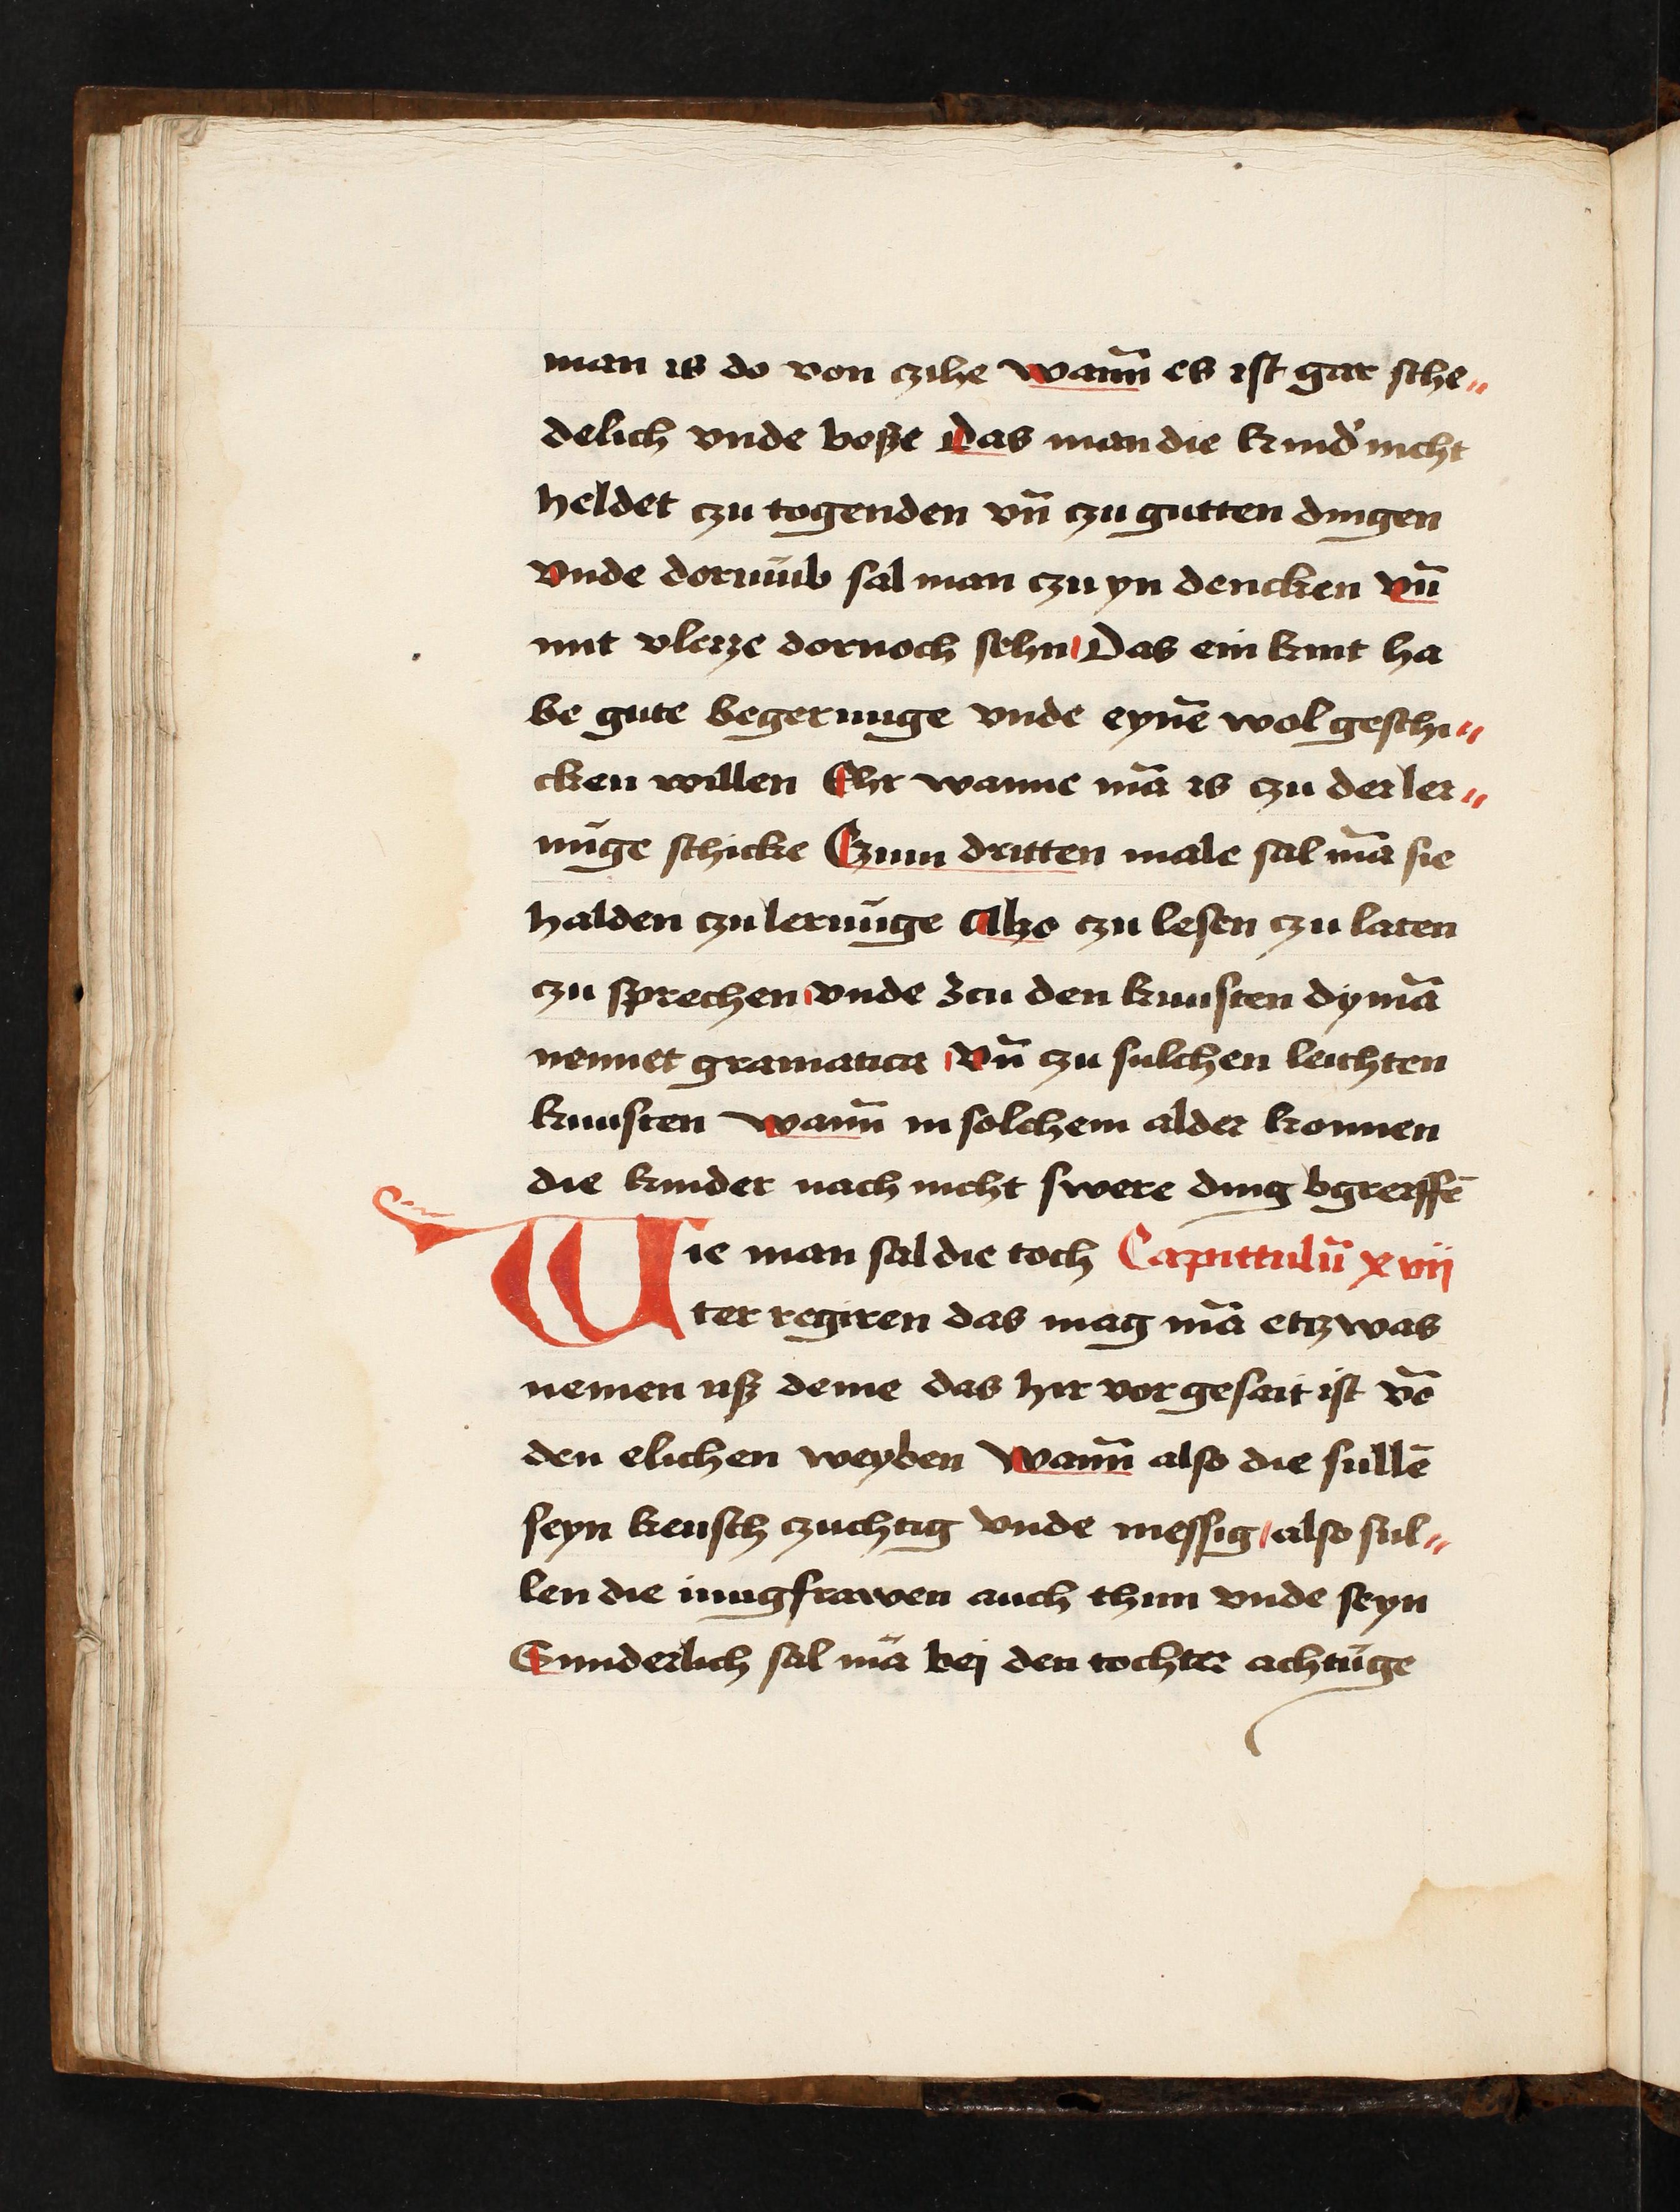 man is do von czihe wann̄ es ist gar sche〃
delich vnde boße Das man die kind' nicht
heldet czu togenden vn̄ czu gutten dingen
vnde dorūmb sal man czu yn dencken vn̄
mit vleize dornoch sehn Das ein kint ha
be gute begerunge vnde eynē wol geschi〃
cken willen Ehr wanne mā is czu der ler〃
nūge schicke Czum dritten male sal mā sie
halden czu lernūge Alzo czu lesen czu laten
czu sprechen vnde zcu den kunsten dy mā
nennet gramatica vn̄ czu sulchen leichten
kunsten wann̄ in solchem alder konnen
die kinder nach nicht swere ding bgreiffē
Wie man sal die toch Capittulū xvij
ter regiren das mag mā etczwas
nemen uß deme das hir vor gesait ist vō
den elichen weyben Wann̄ also die sullē
seyn keusch czuchtig vnde messig also sul〃
len die iungfrawen auch thun vnde seyn
Sunderlich sal mā bei den tochter achtūge